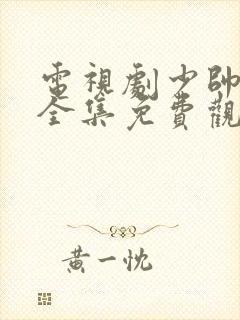 電視劇少帥
全集免費觀
黃一忱